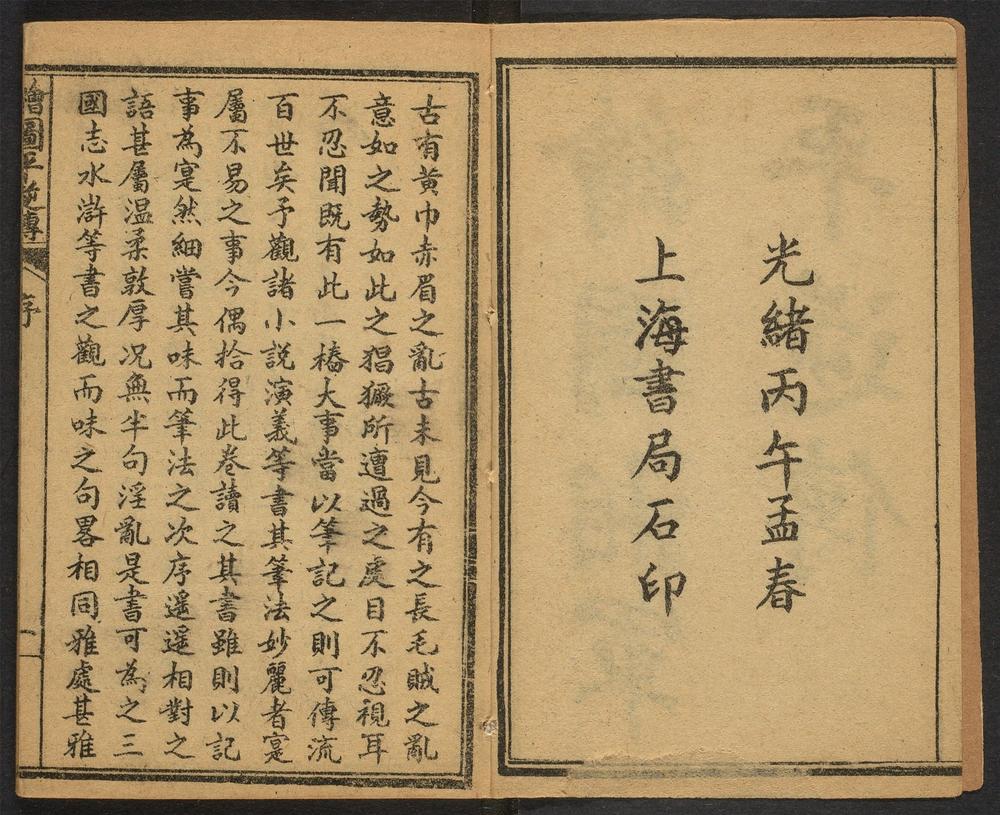 光緒丙午孟春
上海書局石印
古有黃巾赤眉之亂古未見今有之長毛賊之亂
意如之勢如此之猖獗所遭過之處目不忍視耳
不忍聞既有此一樁大事當以筆記之則可傳流
百世矣予觀諸小說演義等書其筆法妙麗者寔
屬不易之事今偶拾得此卷讀之其書雖則以記
事為寔然細嘗其味而筆法之次序遥遥相對之
語甚屬温柔敦厚况無半句淫亂是書可為之三
國志水滸等書之觀而味之句畧相同雅處甚雅
繪圖平逆傳 序 一